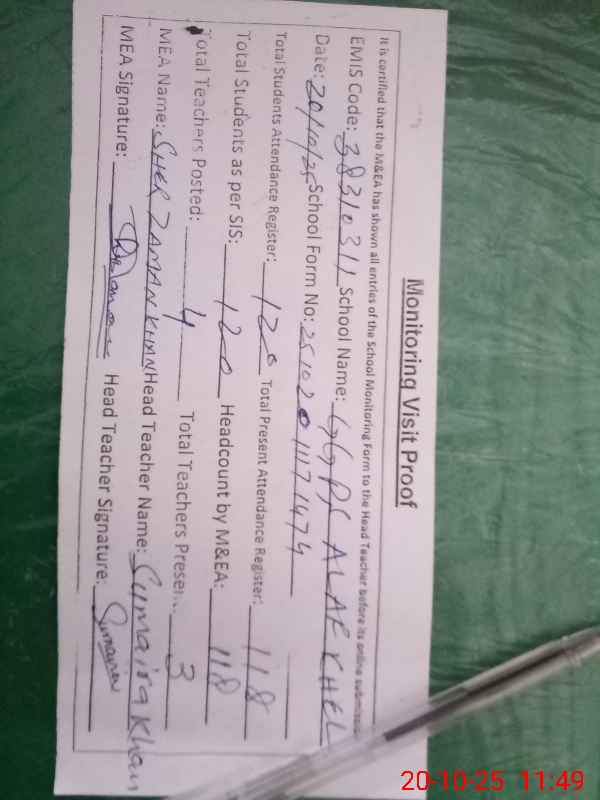 Monitoring Visit Proof
It is certified that the M&EA has shown all entries of the School Monitoring Form to the Head Teacher before its online
EMIS Code: 38310311 School Name: GGPS ALAF KHEL
Date: 20/10/25 School Form No: 2510201117 1474
Total Students Attendance Register: 120 Total Present Attendance Register: 118
Total Students as per SIS: 120 Headcount by M&EA: 118
Total Teachers Posted: 4 Total Teachers 3
MEA Name: SHER ZAMAN KHAN Head Teacher Name: Sumaira Khan
MEA Signature: Head Teacher Signature: Sumaira
20-10-25 11:49